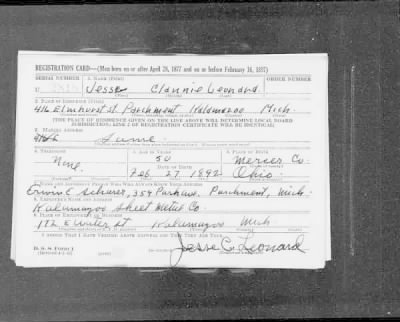 REGISTRATION CARD—(Men born on or after April 28, 1877 and on or before February 16, 1897)
SERIAL NUMBER 1. NAME (Print) ORDER NUMBER
U Jesse Clannie Leonard
2. PLACE OF RESIDENCE (Print)
416 Elmhurst St. Parchment Kalamazoo Mich.
[THE PLACE OF RESIDENCE GIVEN ON THE LINE ABOVE WILL DETERMINE LOCAL BOARD
JURISDICTION; LINE 2 OF REGISTRATION CERTIFICATE WILL BE IDENTICAL]
3. MAILING ADDRESS
Same
4. TELEPHONE 5. AGE IN YEARS 6. PLACE OF BIRTH
None 50 Mercer Co.
DATE OF BIRTH
27 1892 Ohio
7. NAME AND ADDRESS OF PERSON WHO WILL ALWAYS KNOW YOUR ADDRESS
Erwin C 354 Park Ave. Parchment, Mich.
8. EMPLOYER'S NAME AND ADDRESS
Kalamazoo Sheet Metal Co.
9. PLACE OF EMPLOYMENT OR BUSINESS
172 E Water St Kalamazoo Mich
I AFFIRM THAT I HAVE VERIFIED ABOVE ANSWERS AND THAT THEY ARE TRUE.
D. S. S. Form 1
Jesse C. Leonard